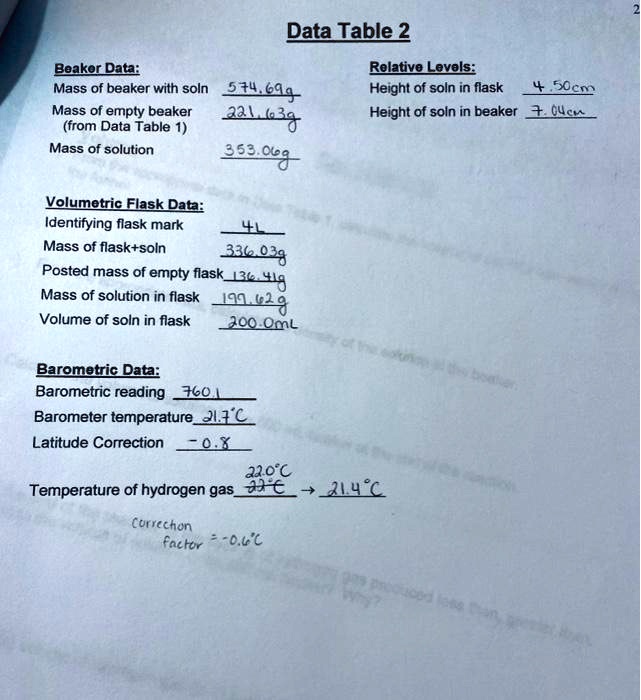 2
Data Table 2
Beaker Data:
Mass of beaker with soln 574.69g
Mass of empty beaker 221.63g
(from Data Table 1)
Mass of solution 353.06g
Relative Levels:
Height of soln in flask 4.50cm
Height of soln in beaker 7.04cm
Volumetric Flask Data:
Identifying flask mark 4L
Mass of flask+soln 336.03g
Posted mass of empty flask 136.41g
Mass of solution in flask 199.62g
Volume of soln in flask 200.0mL
Barometric Data:
Barometric reading 760.1
Barometer temperature 21.7°C
Latitude Correction -0.8
22.0°C
Temperature of hydrogen gas 22°C → 21.4°C
correction
factor = -0.6°C